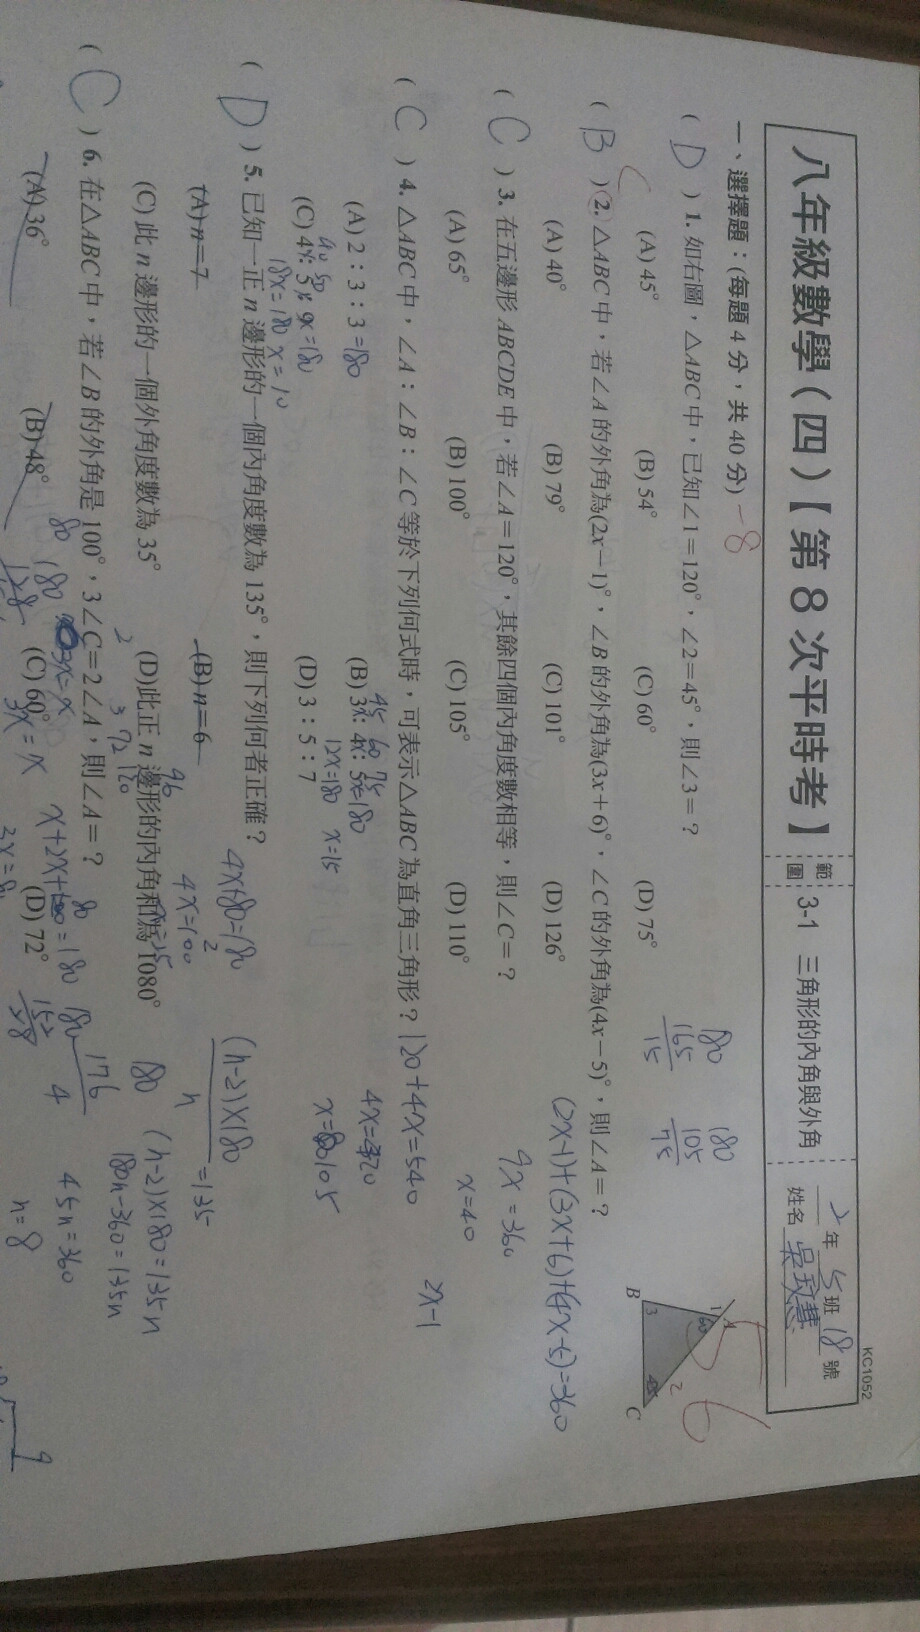 KC1052
八年級數學(四)【第8次平時考】
範圍 3-1 三角形的內角與外角
2年5班18號
姓名
56
一、選擇題：(每題4分，共40分) -8
( D ) 1. 如右圖，△ABC中，已知∠1=120°，∠2=45°，則∠3=？
(A) 45° (B) 54° (C) 60° (D) 75°
180 165 15
180 105 75
A 1 60 B 3 45 2 C
( B ) C 2. △ABC中，若∠A的外角為(2x-1)°，∠B的外角為(3x+6)°，∠C的外角為(4x-5)°，則∠A=？
(A) 40° (B) 79° (C) 101° (D) 126°
(2x-1)+(3x+6)+(4x-5)=360
9x=360
x=40
2x-1
( C ) 3. 在五邊形ABCDE中，若∠A=120°，其餘四個內角度數相等，則∠C=？
(A) 65° (B) 100° (C) 105° (D) 110°
120+4x=540
4x=420
x=105
( C ) 4. △ABC中，∠A：∠B：∠C等於下列何式時，可表示△ABC為直角三角形？
(A) 2：3：3=180 (B) 3x：4x：5x=180
45 60 75
12x=180 x=15
(C) 4x：5x：9x=180 (D) 3：5：7
40 50
18x=180 x=10
( D ) 5. 已知一正n邊形的一個內角度數為135°，則下列何者正確？
(A) n=7 (B) n=6
(C) 此n邊形的一個外角度數為35° (D) 此正n邊形的內角和為1080°
4x+80=180
4x=100
(n-2)×180
n
=135
(n-2)×180=135n
180n-360=135n
45n=360
n=8
( C ) 6. 在△ABC中，若∠B的外角是100°，3∠C=2∠A，則∠A=？
(A) 36° (B) 48° (C) 60° (D) 72°